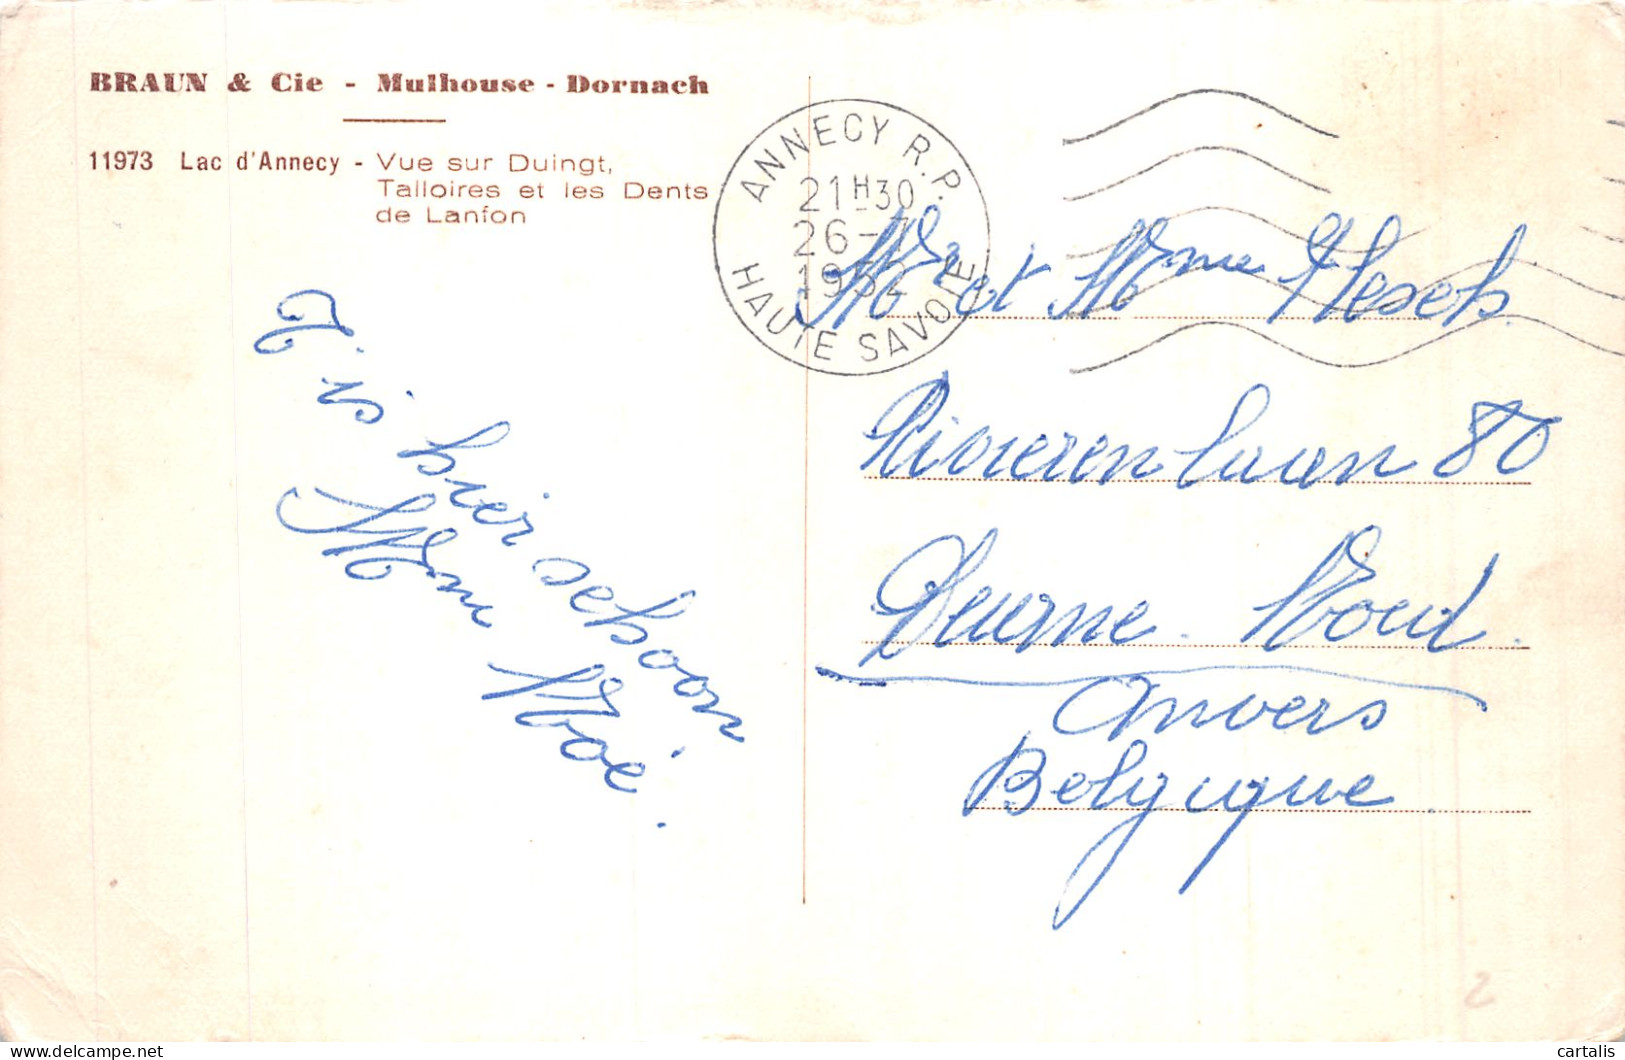 BRAUN & Cie - Mulhouse - Dornach
11973 Lac d'Annecy - Vue sur Duingt,
Talloires et les Dents
de Lanfon
ANNECY R.P.
21H30
26-7
1952
HAUTE SAVOIE
T'is hier schoon
Mme Noé.
Mr et Mme
Rivierenlaan 80
Deurne. Noord.
Anvers
Belgique.
2
cartalis
delcampe.net